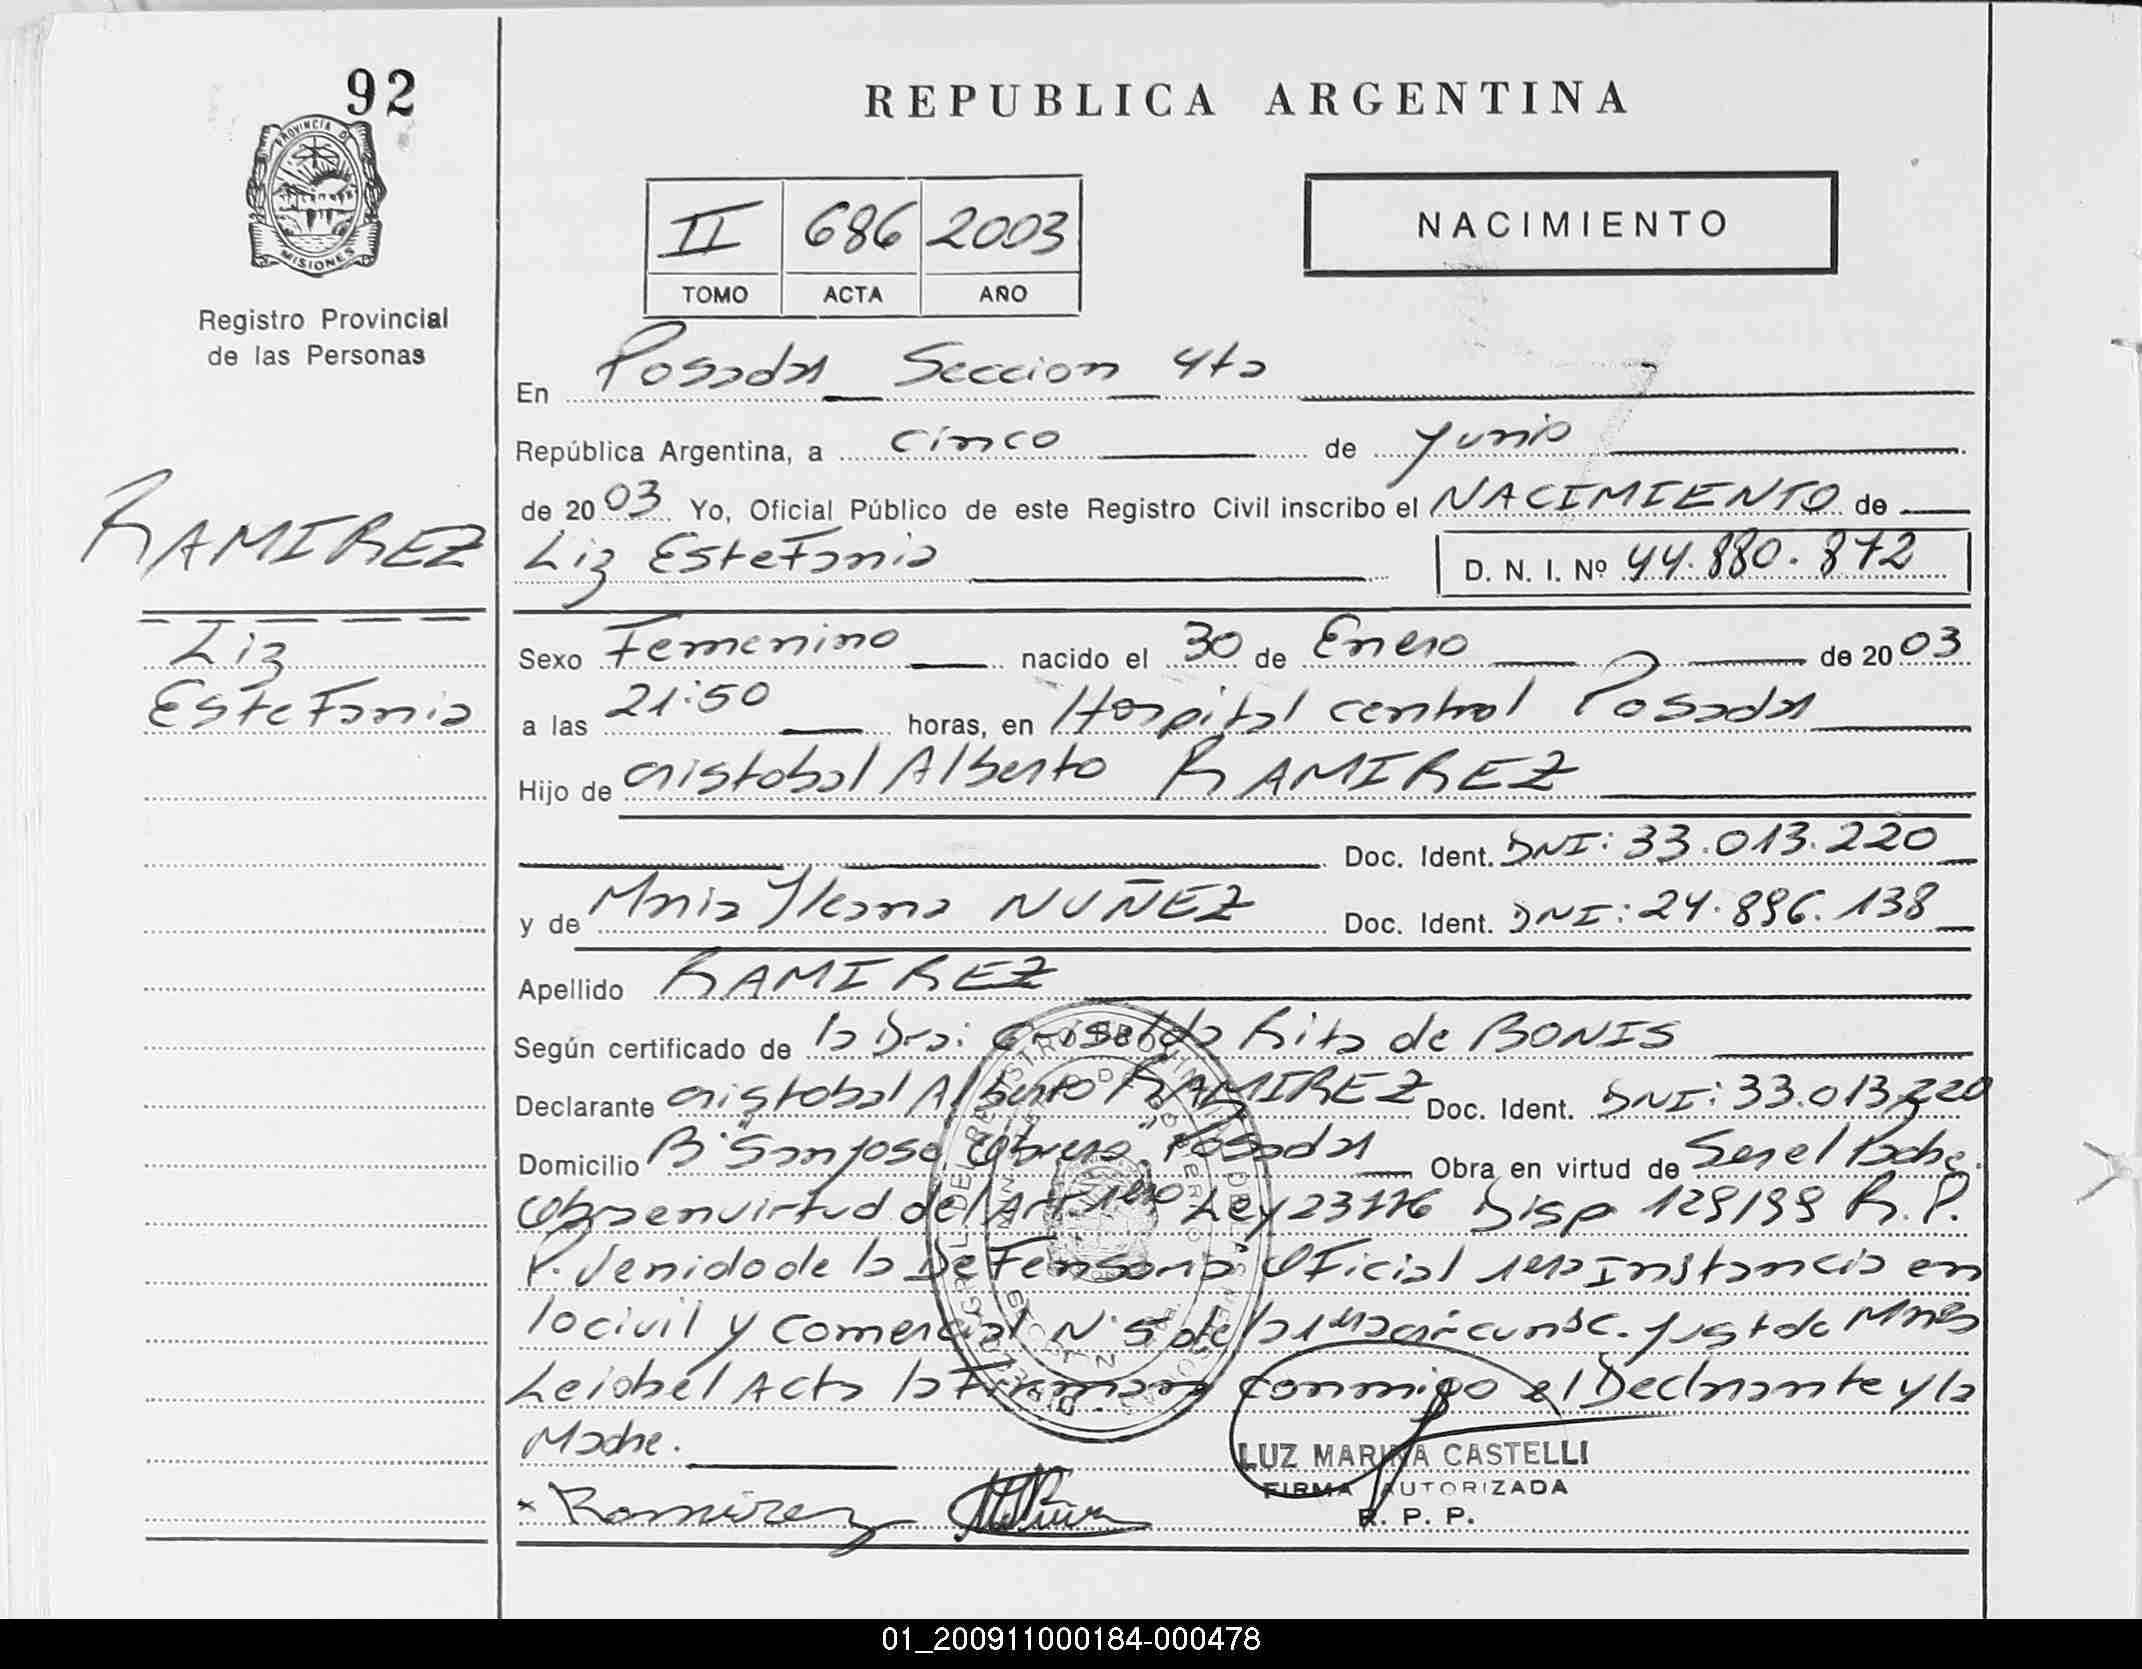 92
PROVINCIA DE
MISIONES
Registro Provincial
de las Personas
RAMIREZ
Liz
Estefania
REPUBLICA ARGENTINA
II 686 2003
TOMO ACTA AÑO
NACIMIENTO
En Posadas Seccion 4ta
República Argentina, a cinco de Junio
de 2003 Yo, Oficial Público de este Registro Civil inscribo el NACIMIENTO de
Liz Estefania D. N. I. Nº 44.880.872
Sexo Femenino nacido el 30 de Enero de 2003
a las 21:50 horas, en Hospital central Posadas
Hijo de Cristobal Alberto RAMIREZ
Doc. Ident. DNI: 33.013.220
y de Maria Ileana NUÑEZ Doc. Ident. DNI: 24.896.138
Apellido RAMIREZ
Según certificado de la Dra: Griselda Rita de BONIS
Declarante Cristobal Alberto RAMIREZ Doc. Ident. DNI: 33.013.220
Domicilio Bº "San Jose Obrero" Posadas Obra en virtud de Ser el Padre.
Obra en virtud del Art. 1ero Ley 23776 Disp 129/99 R.P.
P. Venido de la Defensoria Oficial 1era Instancia en
lo civil y Comercial Nº 5 de la 1era circunsc. Just de Mnes
Leida el Acta la Firman conmigo el Declarante y la
Madre.
x Ramirez
LUZ MARINA CASTELLI
FIRMA AUTORIZADA
R. P. P.
01_200911000184-000478